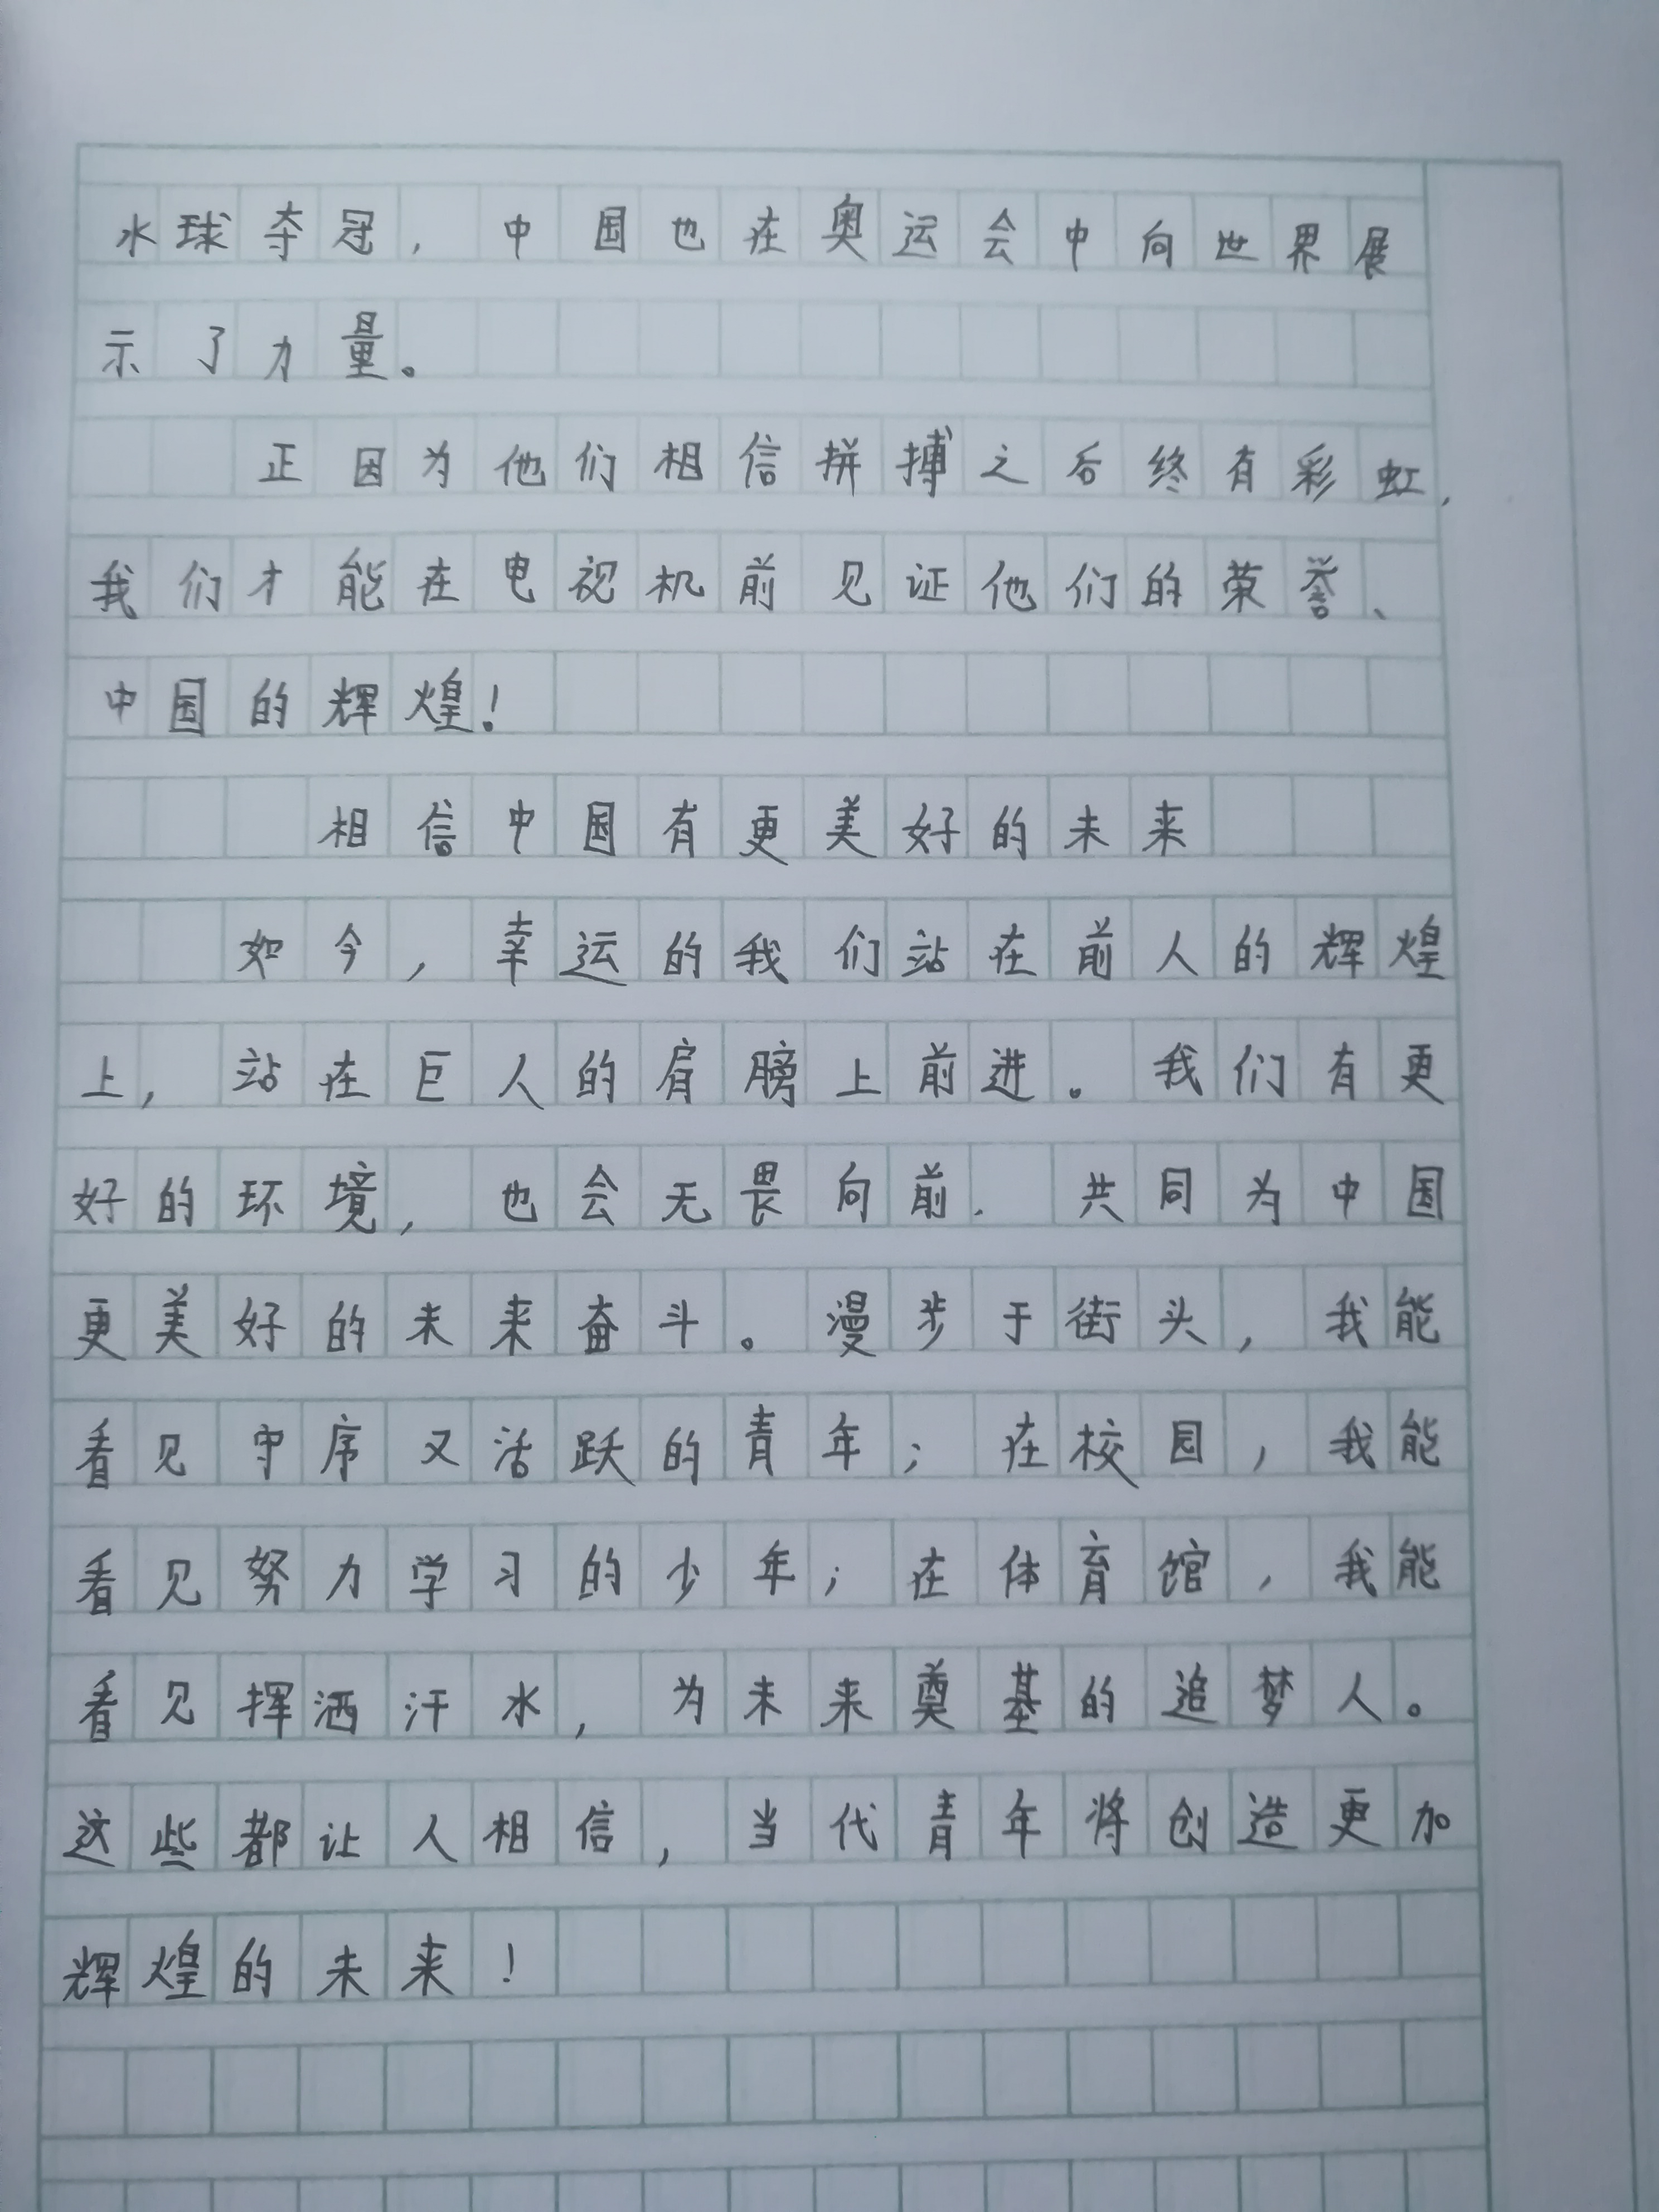 水球夺冠，中国也在奥运会中向世界展
示了力量。
正因为他们相信拼搏之后终有彩虹，
我们才能在电视机前见证他们的荣誉、
中国的辉煌！
相信中国有更美好的未来
如今，幸运的我们站在前人的辉煌
上，站在巨人的肩膀上前进。我们有更
好的环境，也会无畏向前．共同为中国
更美好的未来奋斗。漫步于街头，我能
看见守序又活跃的青年；在校园，我能
看见努力学习的少年；在体育馆，我能
看见挥洒汗水，为未来奠基的追梦人。
这些都让人相信，当代青年将创造更加
辉煌的未来！